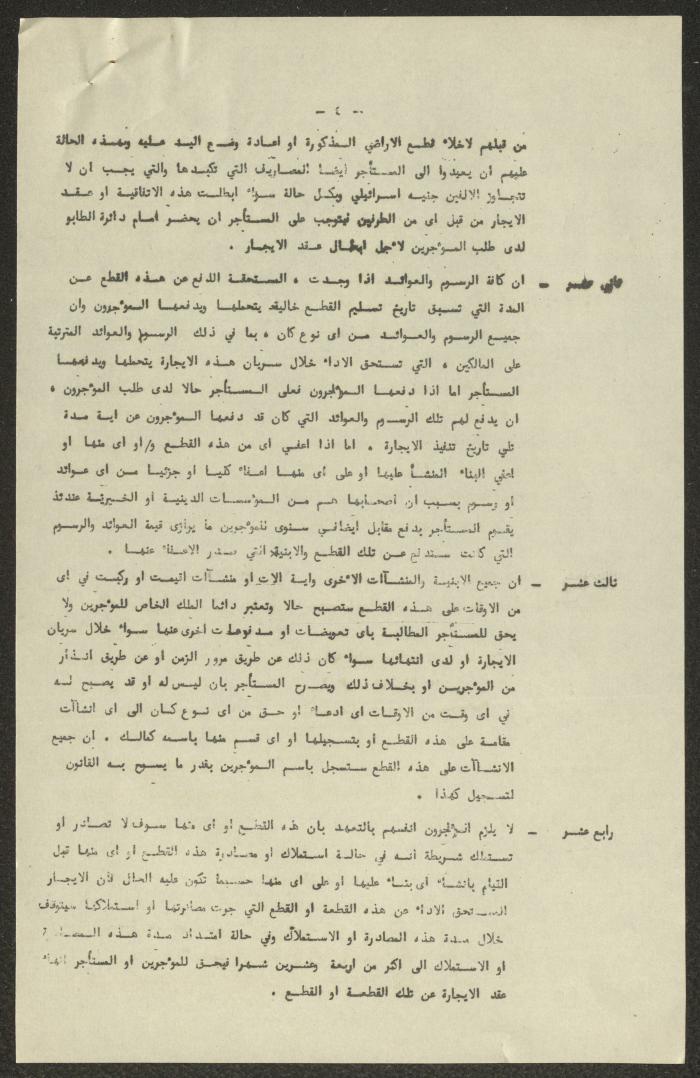 - ٤ -
من قبلهم لاخلاء قطع الاراضي المذكورة او اعادة وضع اليد عليه وبهذه الحالة
عليهم ان يعيدوا الى المستأجر ايضا المصاريف التي تكبدها والتي يجب ان لا
تتجاوز الالفين جنيه اسرائيلي وبكل حالة سواء ابطلت هذه الاتفاقية او عقد
الايجار من قبل اى من الطرفين فيتوجب على المستأجر ان يحضر امام دائرة الطابو
لدى طلب المؤجرين لاجل ابطال عقد الايجار .
ثاني عشر - ان كافة الرسوم والعوائد اذا وجدت ، المستحقة الدفع عن هذه القطع عن
المدة التي تسبق تاريخ تسليم القطع خالية يتحملها ويدفعها المؤجرون وان
جميع الرسوم والعوائد من اى نوع كان ، بما في ذلك الرسوم والعوائد المترتبة
على المالكين ، التي تستحق الاداء خلال سريان هذه الايجارة يتحملها ويدفعها
المستأجر اما اذا دفعها المؤجرون فعلى المستأجر حالا لدى طلب المؤجرون ،
ان يدفع لهم تلك الرسوم والعوائد التي كان قد دفعها المؤجرون عن اية مدة
تلي تاريخ تنفيذ الايجارة . اما اذا اعفي اى من هذه القطع و/او اى منها او
اعفي البناء المنشأ عليها او على اى منها اعفاء كليا او جزئيا من اى عوائد
او رسوم بسبب ان اصحابها هم من المؤسسات الدينية او الخيرية عندئذ
يقوم المستأجر بدفع مقابل ايضافي سنوى للمؤجرين ما يوازى قيمة العوائد والرسوم
التي كانت ستدفع عن تلك القطع والابنية التي صدر الاعفاء عنها .
ثالث عشر - ان جميع الابنية والمنشآات الاخرى واية الات او منشآات اقيمت او ركبت في اى
من الاوقات على هذه القطع ستصبح حالا وتعتبر دائما الملك الخاص للمؤجرين ولا
يحق للمستأجر المطالبة باى تعويضات او مدفوعات اخرى عنها سواء خلال سريان
الايجارة او لدى انتهائها سواء كان ذلك عن طريق مرور الزمن او عن طريق انذار
من المؤجرين او بخلاف ذلك ويصرح المستأجر بان ليس له او قد يصبح له
في اى وقت من الاوقات اى ادعاء او حق من اى نوع كان الى اى انشاآت
مقامة على هذه القطع او بتسجيلها او اى قسم منها باسمه كمالك . ان جميع
الانشاآت على هذه القطع ستسجل باسم المؤجرين بقدر ما يسمح به القانون
لتسجيل كهذا .
رابع عشر - لا يلزم المؤجرون انفسهم بالتعهد بان هذه القطع او اى منها سوف لا تصادر او
تستملك شريطة انه في حالة استملاك او مصادرة هذه القطع او اى منها قبل
القيام بانشاء اى بناء عليها او على اى منها حسبما تكون عليه الحال فان الايجار
المستحق الاداء عن هذه القطعة او القطع التي جرت مصادرتها او استملاكها سيتوقف
خلال مدة هذه المصادرة او الاستملاك وفي حالة امتداد مدة هذه المصادرة
او الاستملاك الى اكثر من اربعة وعشرين شهرا فيحق للمؤجرين او المستأجر انهاء
عقد الايجارة عن تلك القطعة او القطع .